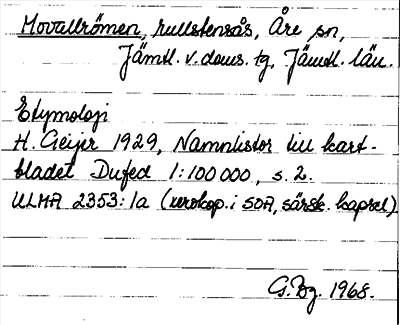 Movallrömen, rullstensås, Åre sn,
Jämtl. v. doms. tg, Jämtl. län.
Etymologi
H. Geijer 1929, Namnlistor till kart-
bladet Dufed 1:100 000, s. 2.
ULMA 2353:1a (xerokop. i SOA, särsk. kapsel)
G. Bg. 1968.